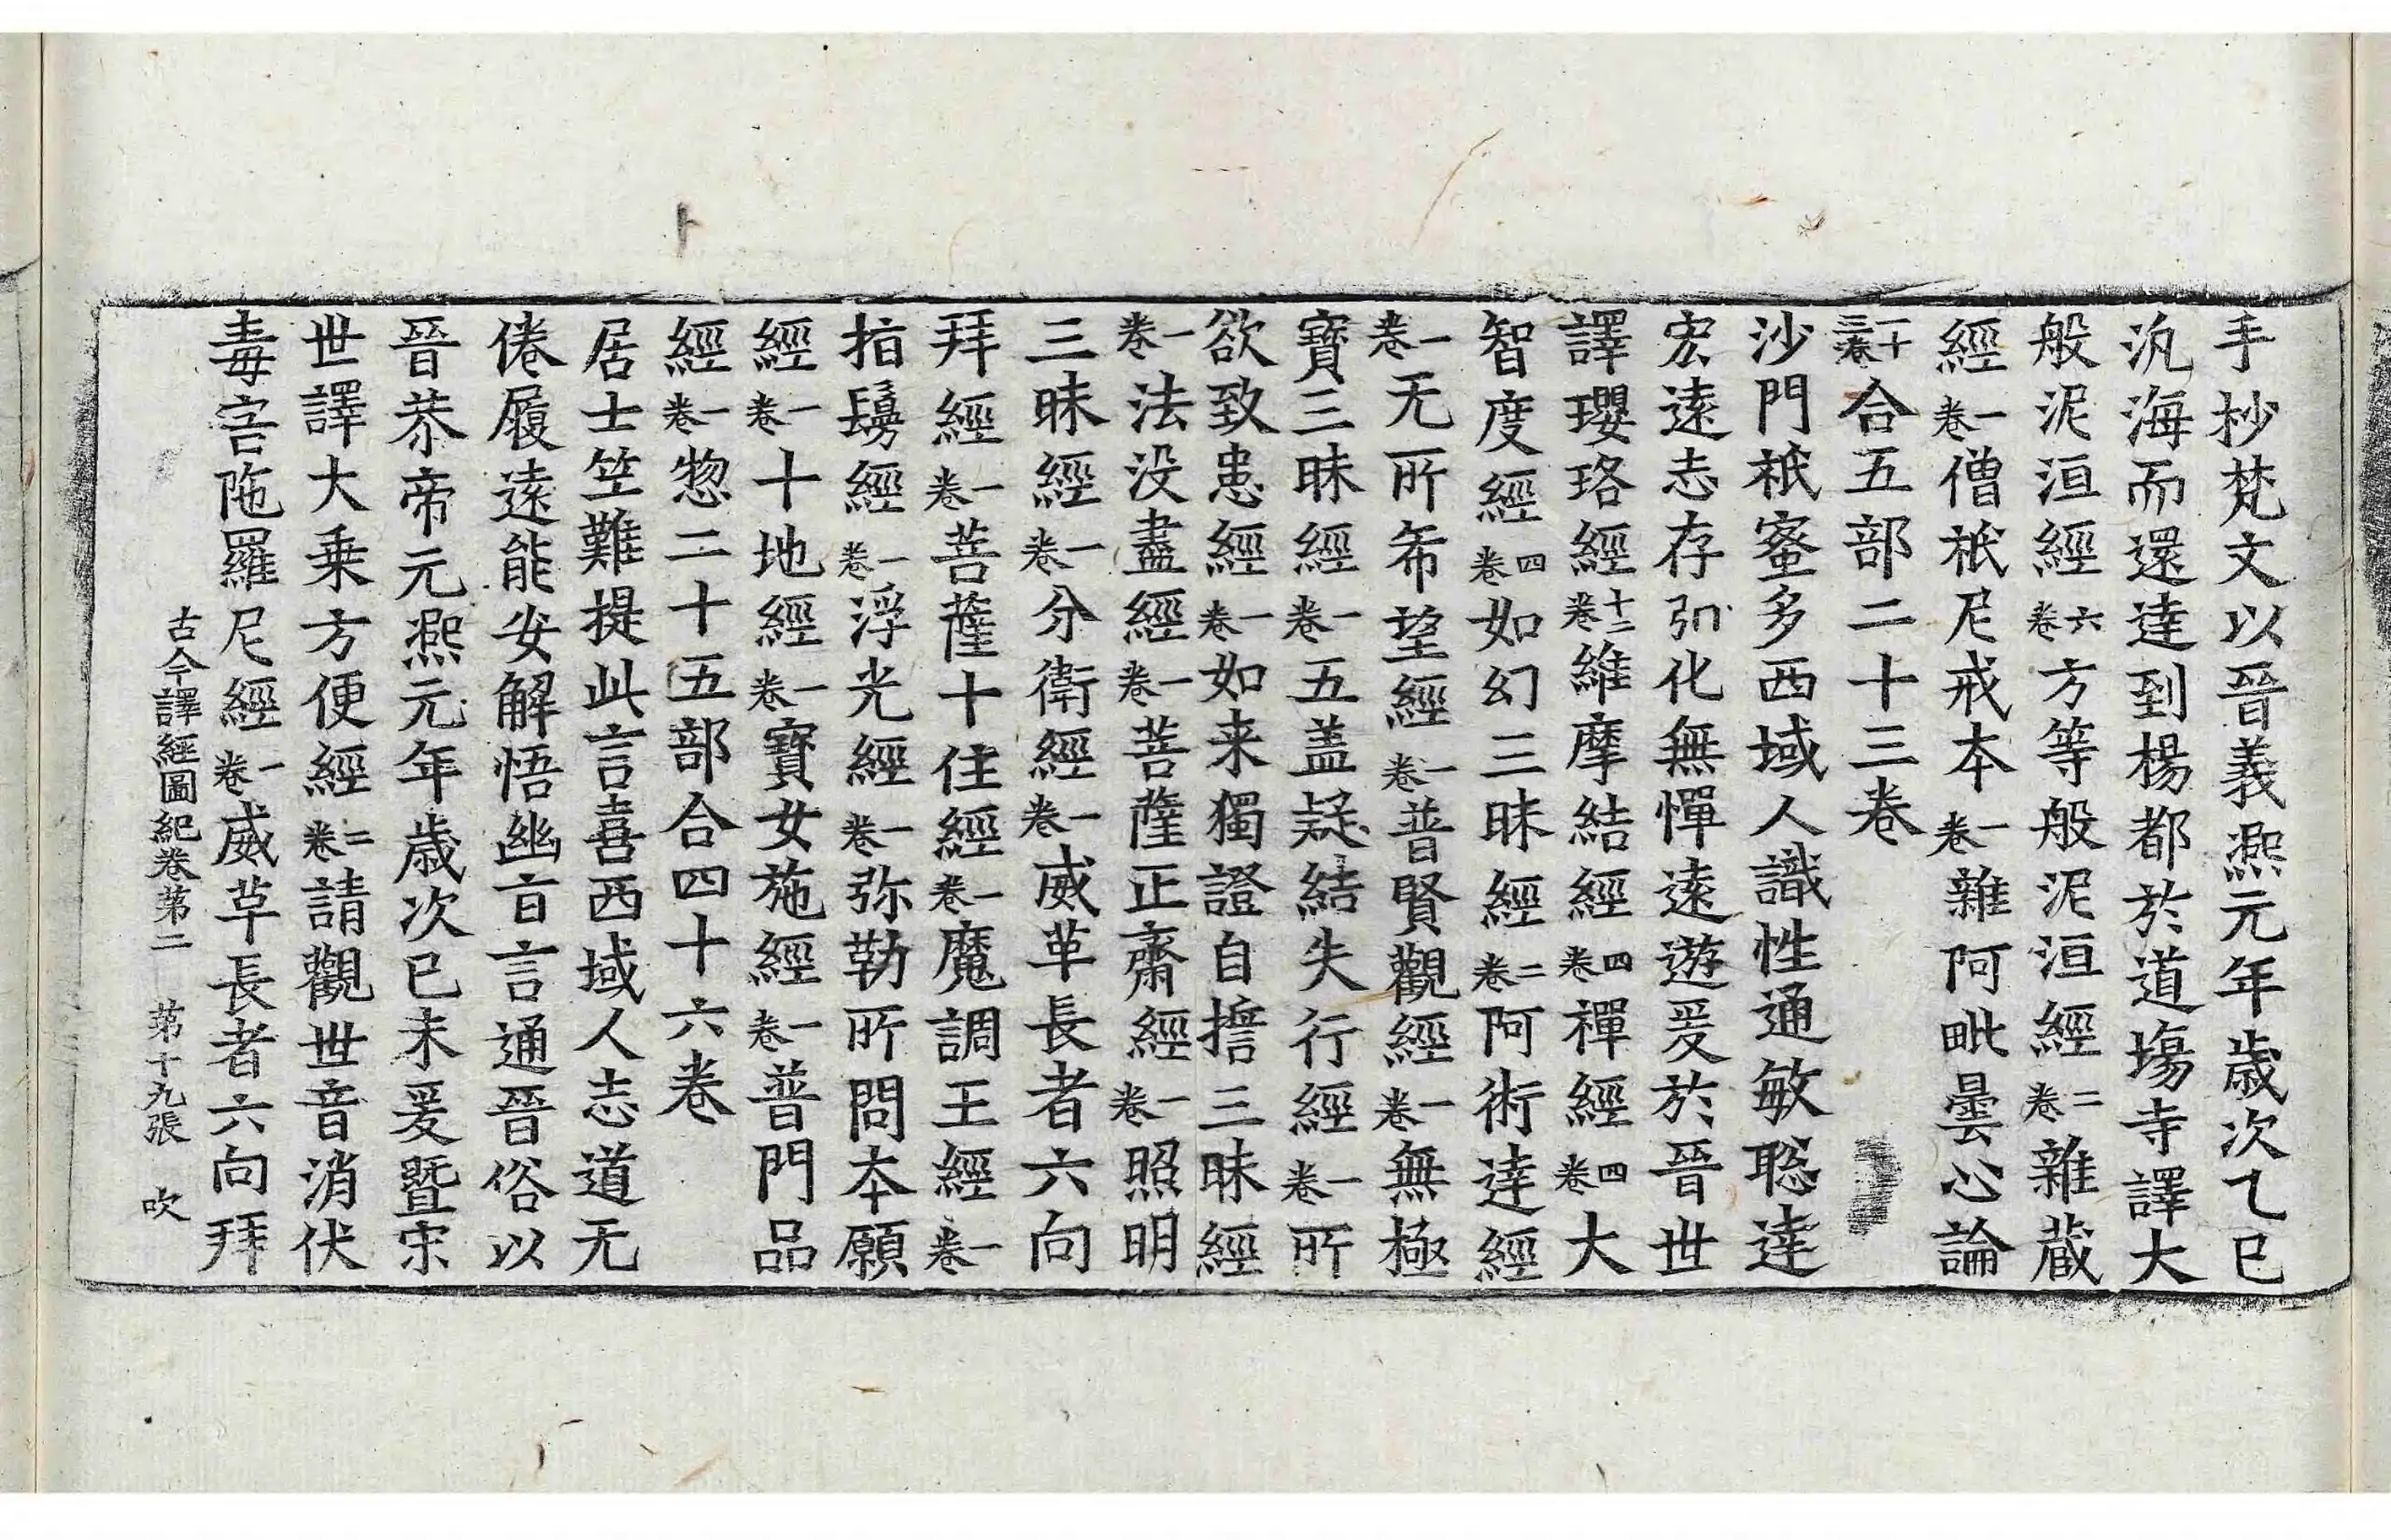 手抄梵文以晉義熈元年歲次乙巳
汎海而還達到楊都於道場寺譯大
般泥洹經六卷方等般泥洹經二卷雜藏
經一卷僧祇尼戒本一卷雜阿毗曇心論
一十三卷合五部二十三卷
沙門祇蜜多西域人識性通敏聡達
宏遠志存弘化無憚遠遊爰於晉世
譯瓔珞經十二卷維摩結經四卷禪經四卷大
智度經四卷如幻三昧經二卷阿術達經
一卷无所希望經一卷普賢觀經一卷無極
寶三昧經一卷五盖疑結失行經一卷所
欲致患經一卷如来獨證自誓三昧經
一卷法没盡經一卷菩薩正齋經一卷照明
三昧經一卷分衛經一卷威革長者六向
拜經一卷菩薩十住經一卷魔調王經一卷
指鬘經一卷浮光經一卷弥勒所問本願
經一卷十地經一卷寶女施經一卷普門品
經一卷惣二十五部合四十六卷
居士竺難提此言喜西域人志道无
倦履遠能安解悟幽旨言通晉俗以
晉恭帝元熈元年歲次巳未爰曁宋
世譯大乗方便經二卷請觀世音消伏
毒害陁羅尼經一卷威草長者六向拜
古今譯經圖紀卷第二 第十九張 吹